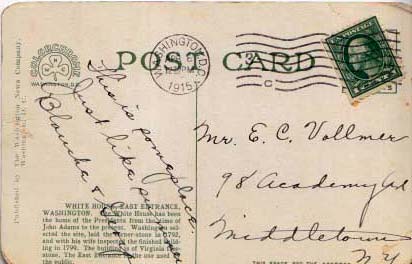 POST CARD
COLORCHROME
WASHINGTON, D.C.
WASHINGTON, D.C.
1915
Published by The Washington News Company,
Washington, D. C.
This is some place.
Just like pictures
Blanche &
Mr. E. C. Vollmer
98 Academy
Middletown
N. Y.
WHITE HOUSE, EAST ENTRANCE,
WASHINGTON. The White House has been
the home of the Presidents from the time of
John Adams to the present. Washington se-
lected the site, laid the corner-stone in 1792,
and with his wife inspected the finished build-
ing in 1799. The building is of Virginia free-
stone. The East Entrance is the one used by
the public.